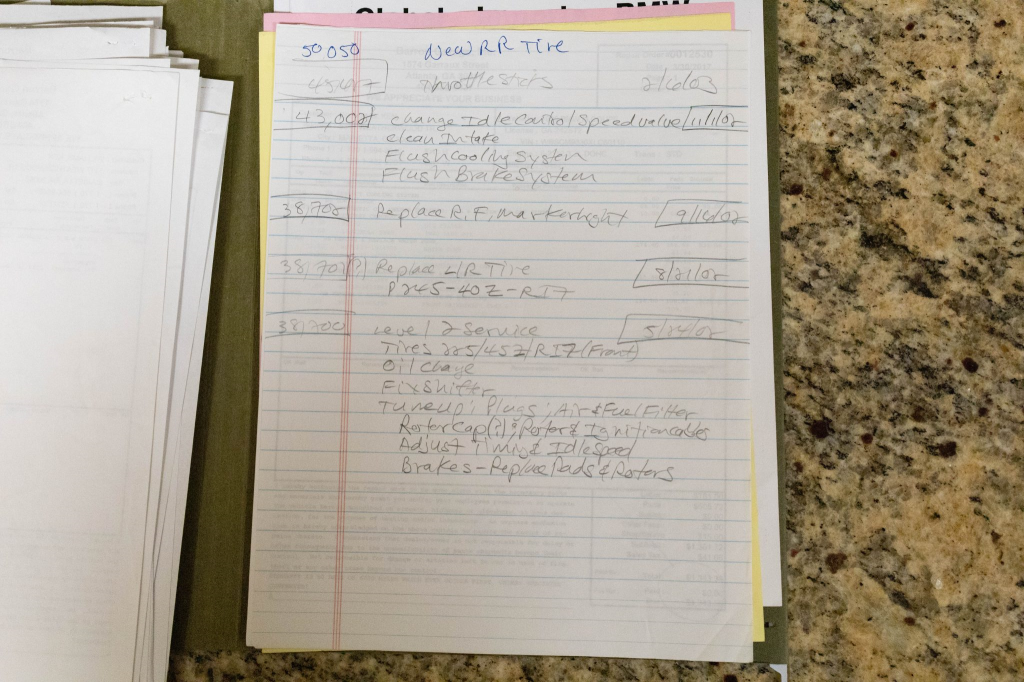 BMW
50050 New RR Tire
Throttle Sticks 2/6/03
43,002 change Idle Control Speed valve 11/1/02
clean Intake
Flush Cooling System
Flush Brake System
38,702 Replace R.F. marker light 9/16/02
38,701(?) Replace L/R Tire 8/21/02
P245-40Z-R17
38,700 Level 2 Service 5/14/02
Tires 225/45Z/R17 (Front)
Oil Change
Fix Shifter
Tuneup; Plugs; Air & Fuel Filter
Rotor Cap(?); Rotor & Ignition cables
Adjust Timing & Idle Speed
Brakes - Replace Pads & Rotors